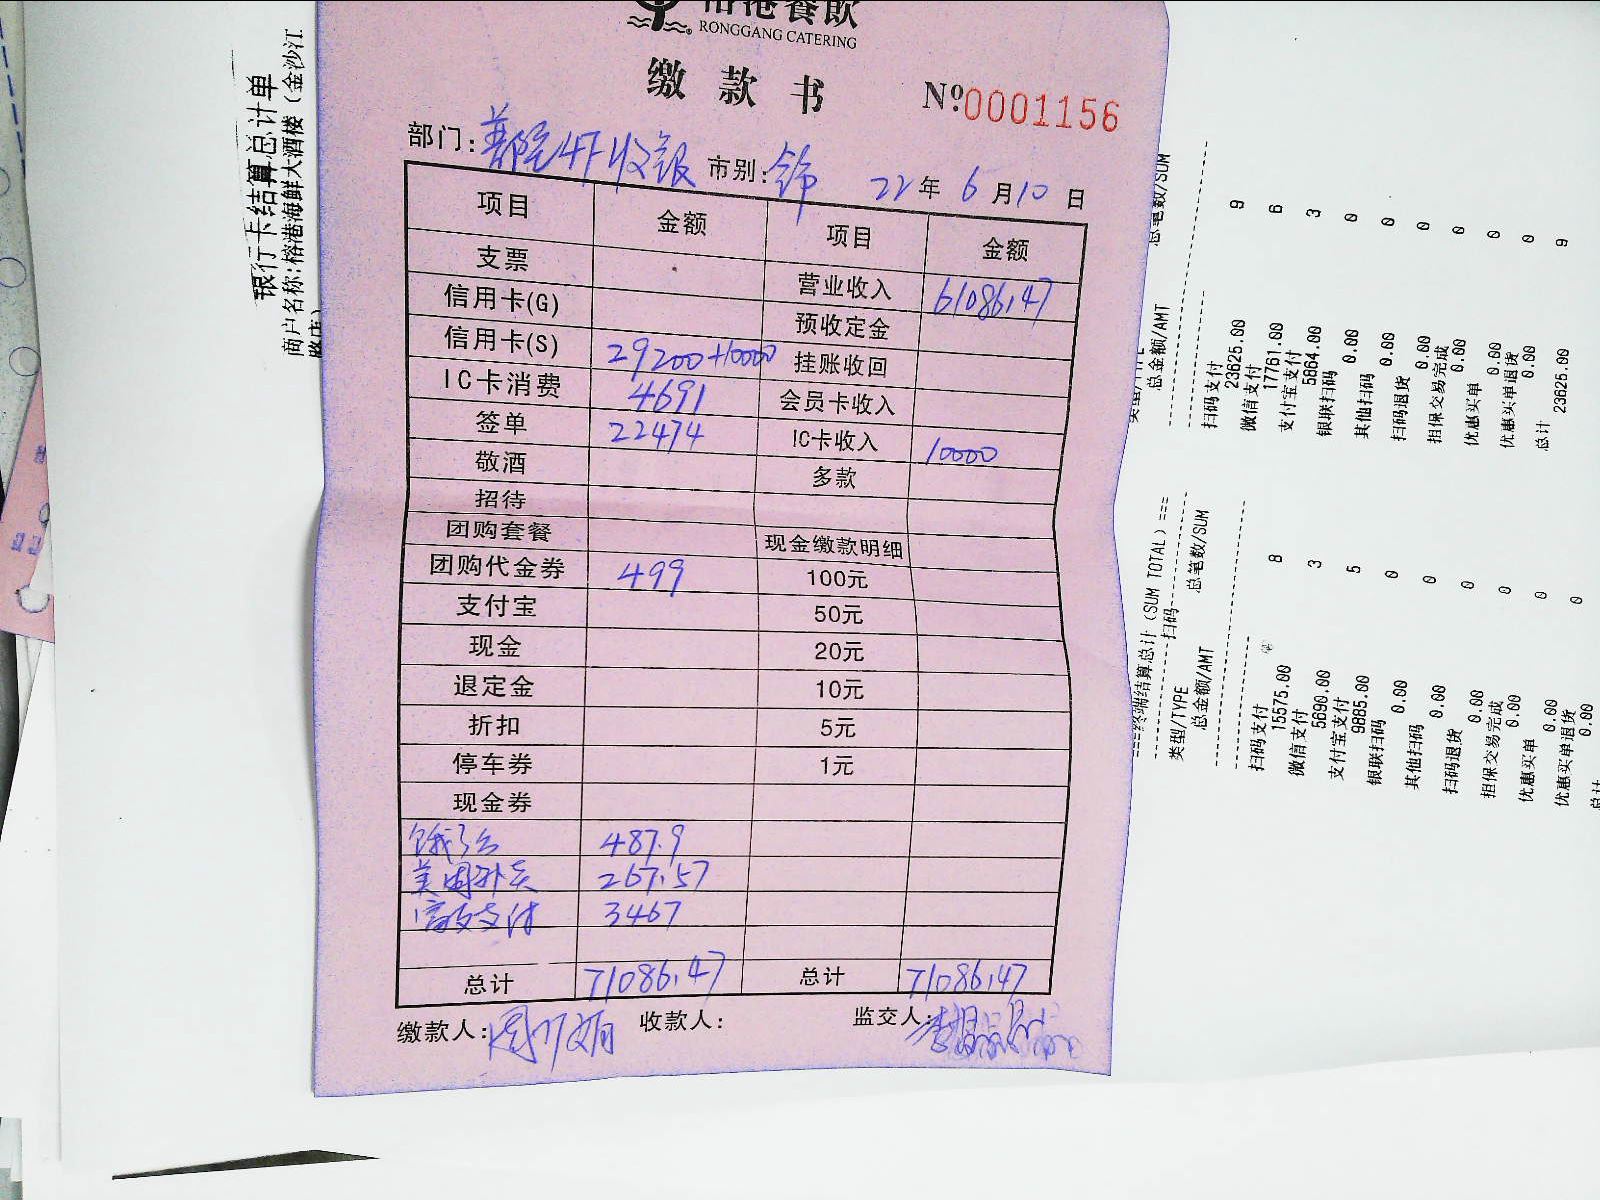 榕港餐飲
RONGGANG CATERING
缴款书 Nº0001156
部门: 4F收银 市别: 22年6月10日
项目 金额 项目 金额
支票 营业收入 61086.47
信用卡(G) 预收定金
信用卡(S) 29200+10000 挂账收回
IC卡消费 4691 会员卡收入
签单 22474 IC卡收入 10000
敬酒 多款
招待
团购套餐 现金缴款明细
团购代金券 499 100元
支付宝 50元
现金 20元
退定金 10元
折扣 5元
停车券 1元
现金券
饿了么 487.9
美团外卖 267.57
支付 3467
总计 71086.47 总计 71086.47
缴款人: 收款人: 监交人:
银行卡结算总计单
商户名称:榕港海鲜大酒楼（金沙江
路店)
总笔数/SUM
总金额/AMT
扫码支付 9
23625.00
微信支付 6
17761.00
支付宝支付 3
5864.00
银联扫码 0
0.00
其他扫码 0
0.00
扫码退货 0
0.00
担保交易完成 0
0.00
优惠买单 0
0.00
优惠买单退货 0
0.00
总计 9
23625.00
===终端结算总计(SUM TOTAL)===
扫码
类型/TYPE 总笔数/SUM
总金额/AMT
扫码支付 8
15575.00
微信支付 3
5690.00
支付宝支付 5
9885.00
银联扫码 0
0.00
其他扫码 0
0.00
扫码退货 0
0.00
担保交易完成 0
0.00
优惠买单 0
0.00
优惠买单退货 0
0.00
总计